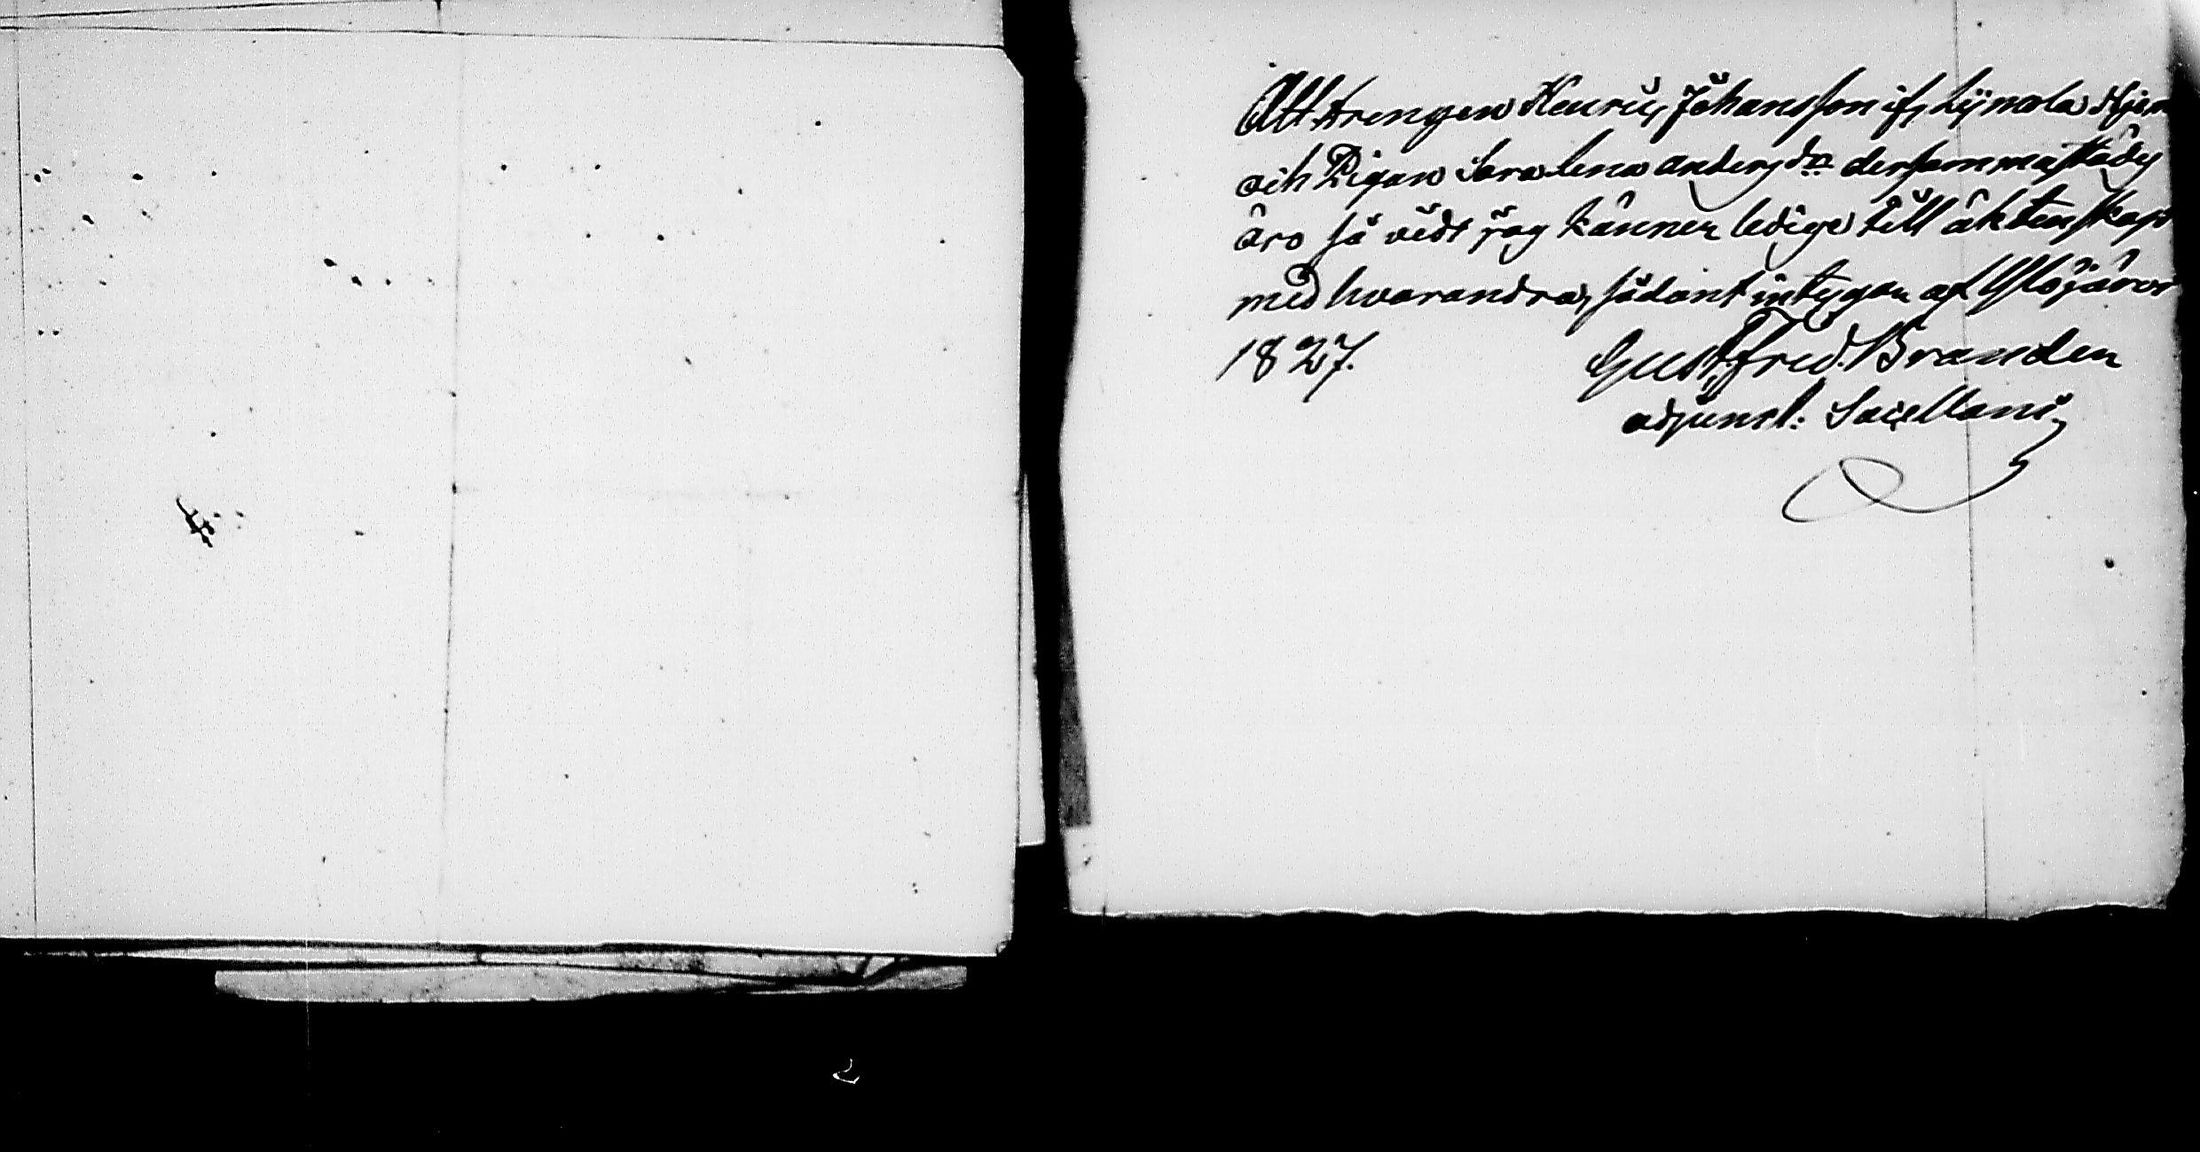 Att drengen Henric Johansson ifr Lijmola Hjem
och Pigan Sara Lena Andersdr dersammastädes
äro så vidt jag känner ledige till äktenskap
med hvarandra, sådant intygar af Ylöjärvi
1827. Gust. Fred. Brander
adjunct: Sacellani